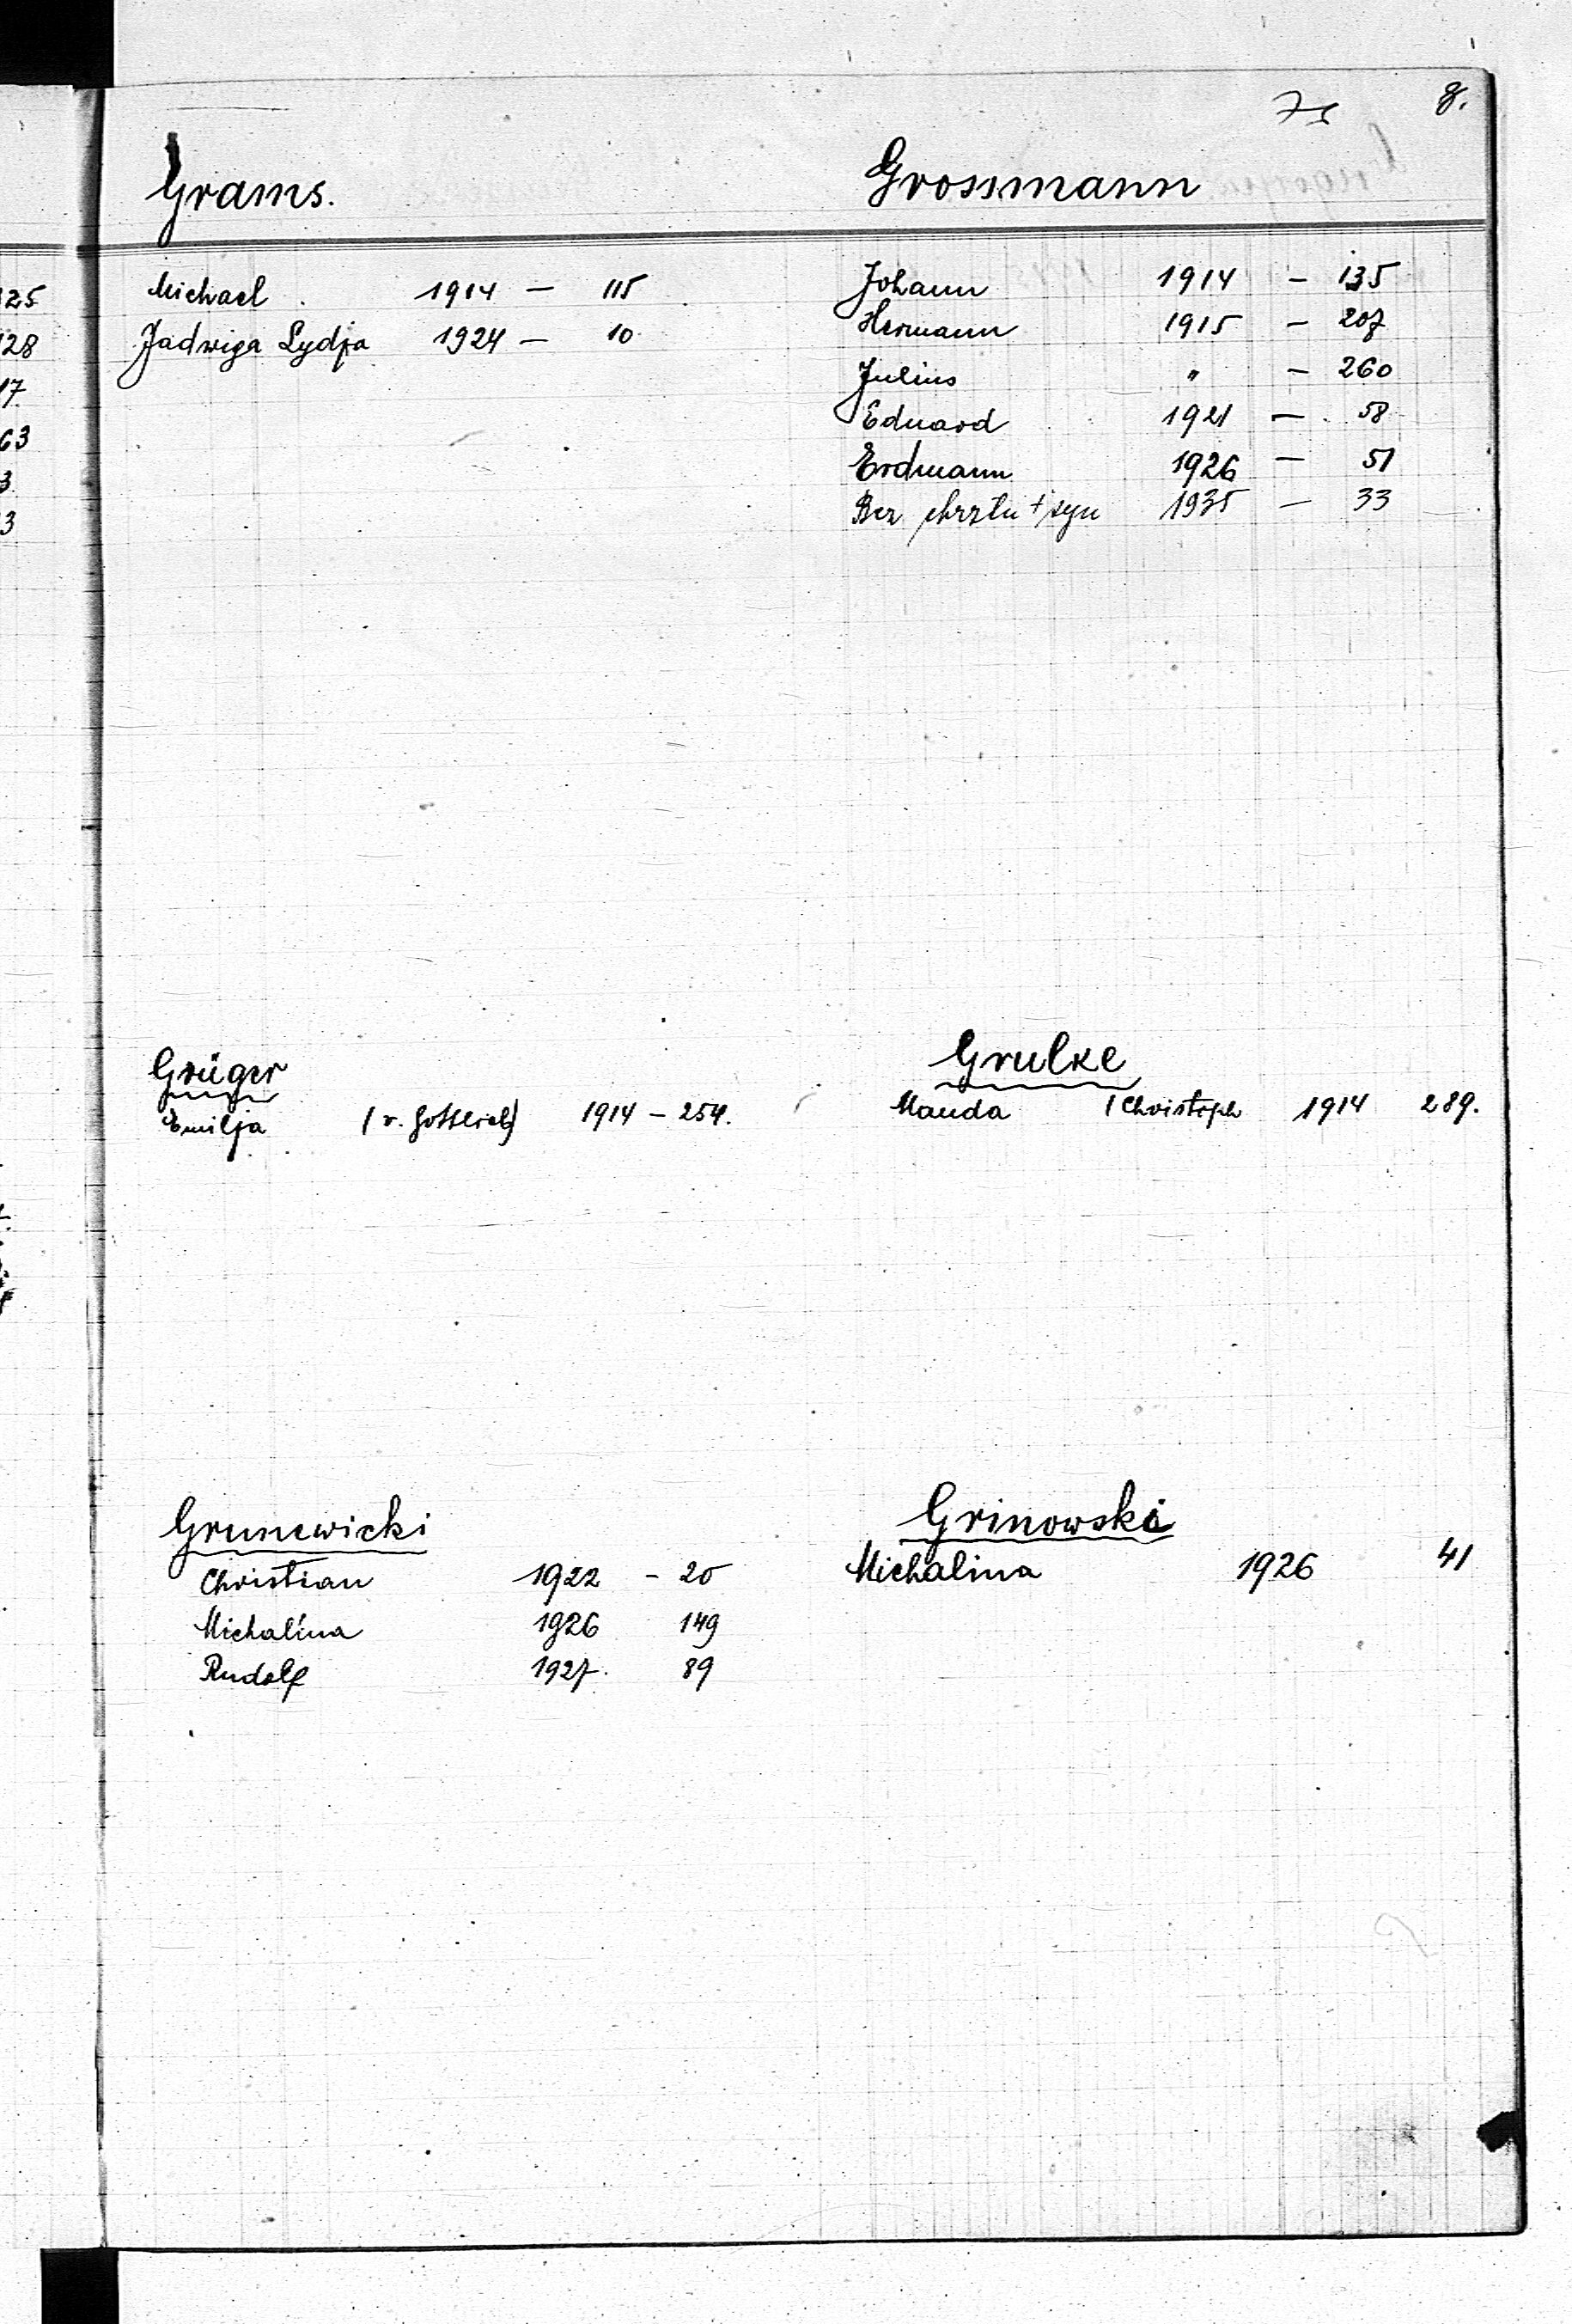 8.
Grams.
Michael 1914 — 115
Jadwiga Lydja 1924 — 10
Grossmann
Johann 1914 — 135
Hermann 1915 — 207
Julius " — 260
Eduard 1921 — 58
Erdmann 1926 — 51
Bez chrztu + syn 1935 — 33
Grüger
Emilja (v. Gottlieb) 1914 — 254.
Grulke
Wanda (Christoph 1914 289.
Grunewicki
Christian 1922 - 20
Michalina 1926 149
Rudolf 1927. 89
Grinowski
Michalina 1926 41
25
128
17.
63
3.
3